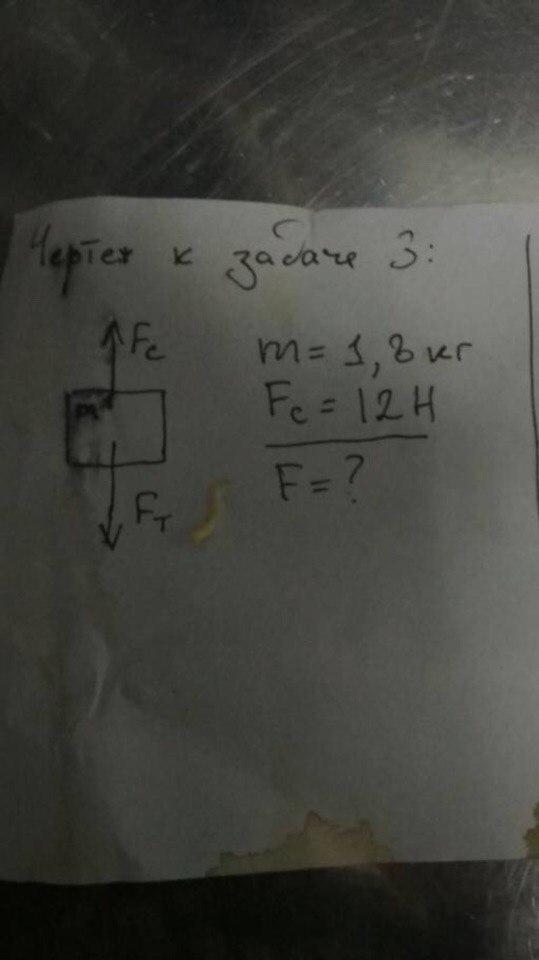 Чертеж к задаче 3:
Fс
m
Fт
m = 1,8 кг
Fс = 12 Н
F = ?